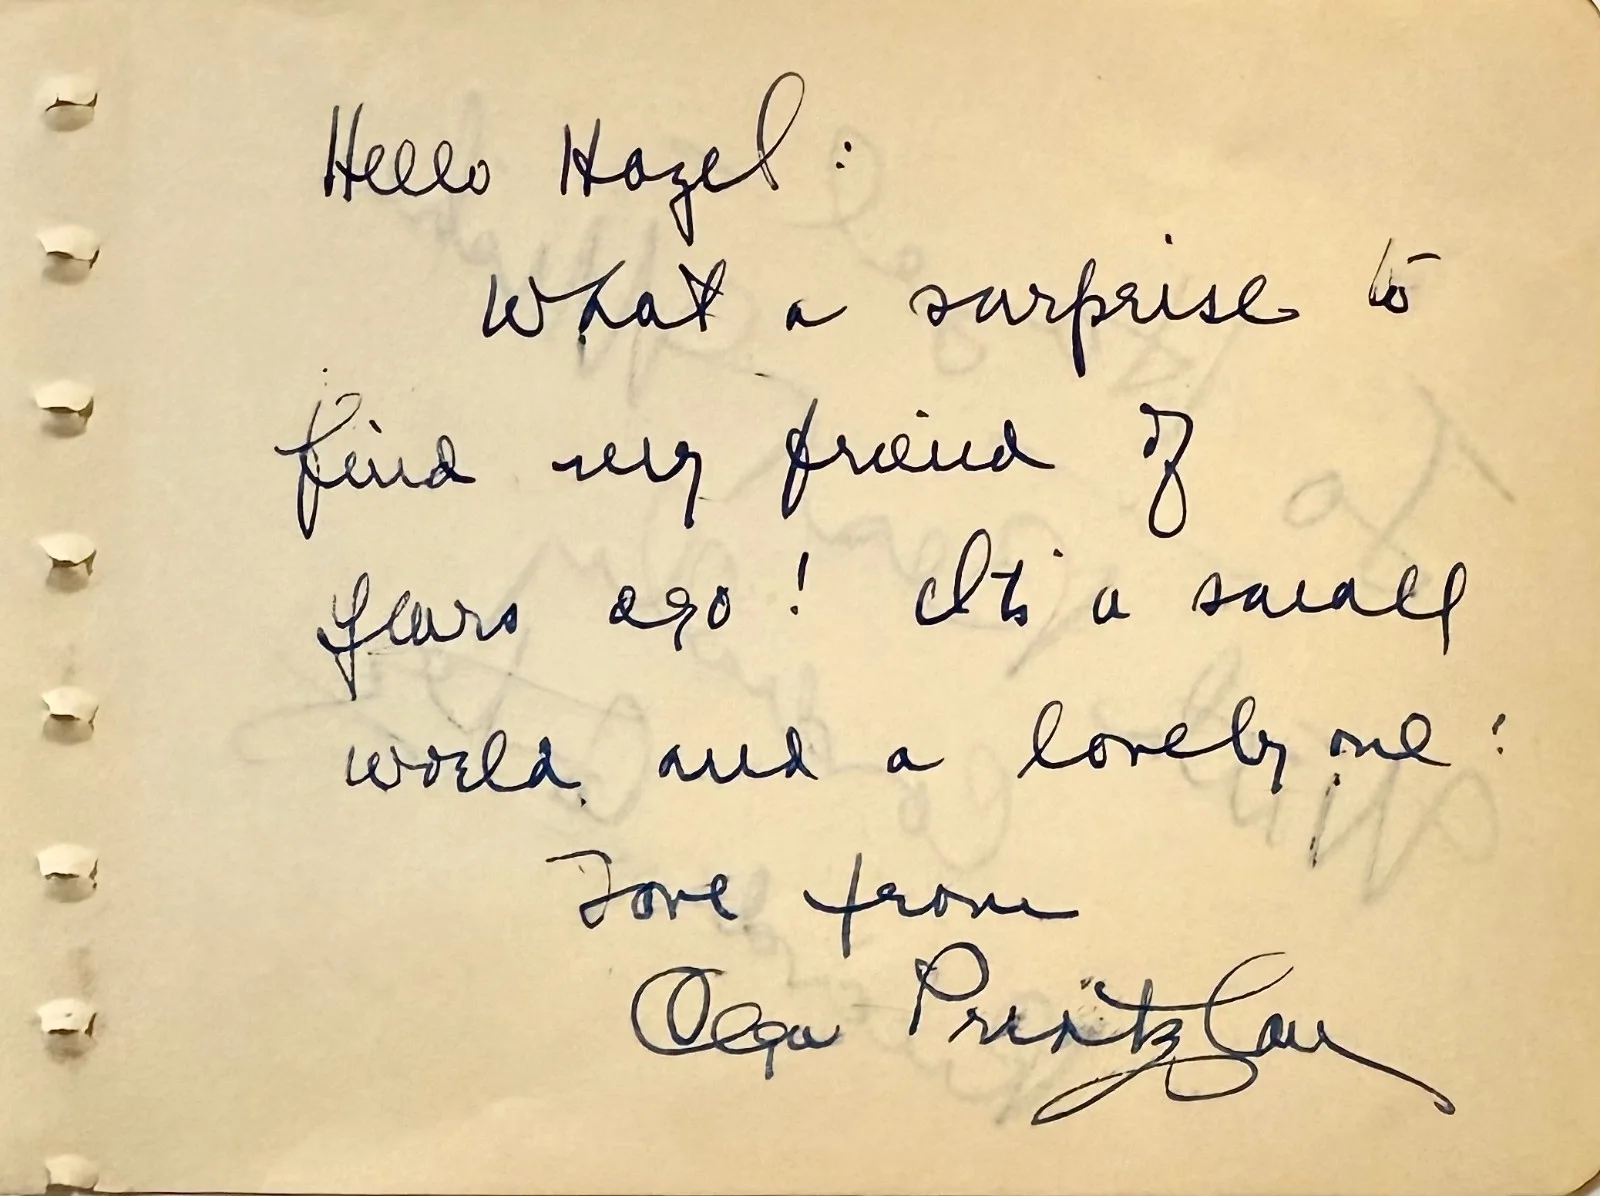 Hello Hazel :
What a surprise to
find my friend of
years ago! It's a small
world and a lovely one !
Love from
Olga Printzlau